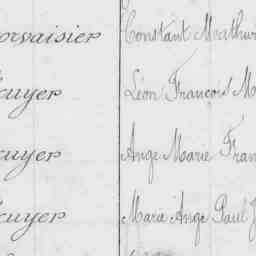 orvaisier Constant Mathur
cuyer Léon François M
cuyer Ange Marie Fran
cuyer Marie Ange Paul J